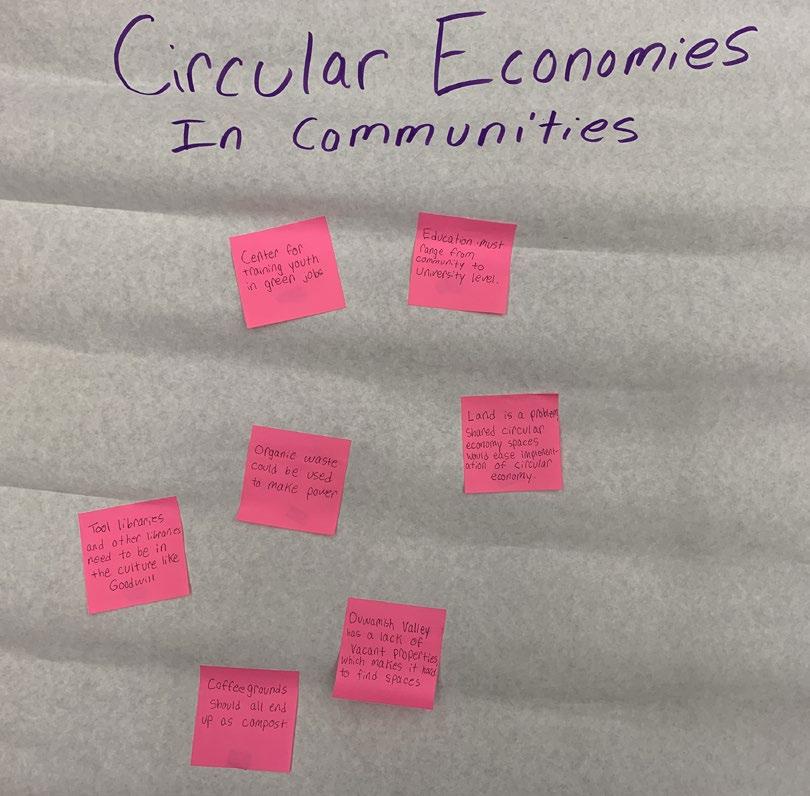 Circular Economies
In Communities
Center for
training youth
in green jobs
Education must
range from
community to
University level.
Land is a problem,
shared circular
economy spaces
would ease implement-
ation of circular
economy.
Organic waste
could be used
to make power
Tool libraries
and other libraries
need to be in
the culture like
Goodwill
Duwamish Valley
has a lack of
vacant properties,
which makes it hard
to find spaces
Coffee grounds
should all end
up as compost